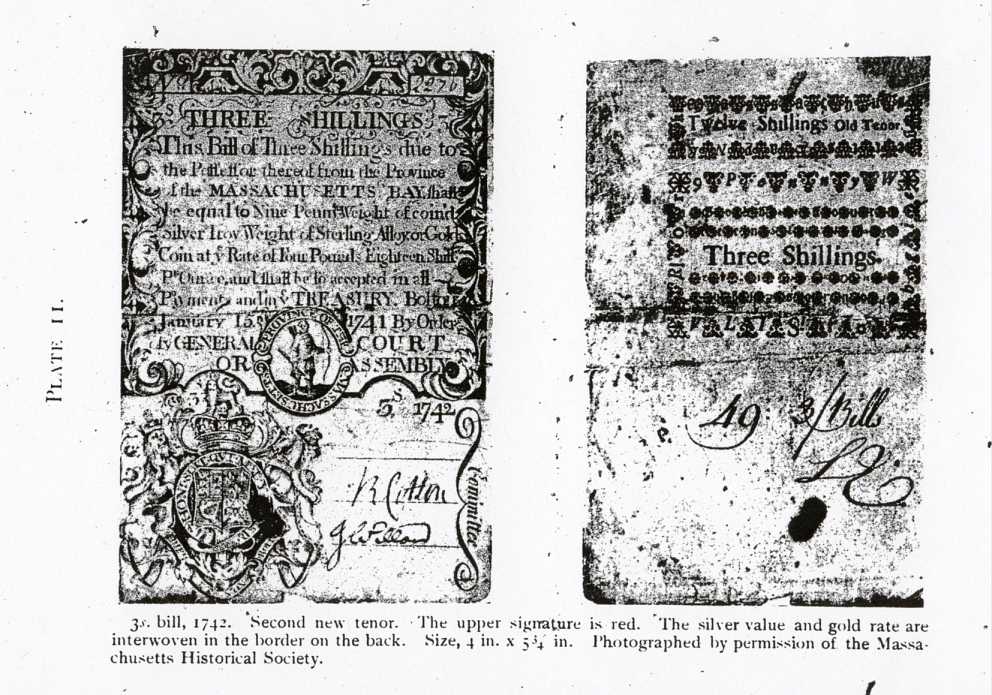 PLATE II.
2270
3s THREE SHILLINGS 3s
This Bill of Three Shillings due to
the Possessor thereof from the Province
of the MASSACHUSETTS BAY shall
be equal to Nine Penny Weight of coin'd
Silver Troy Weight of Sterling Alloy or Gold
Coin at ye Rate of Four Pounds Eighteen Shill
Pr Ounce, and shall be so accepted in all
Payments and in ye TREASURY. Boston
January 15 1741 By Order
GENERAL COURT
OR ASSEMBLY
PROVINCE OF MASSACHUSETS
3s 1742
R Cotton
J Willard
Committee
Twelve Shillings Old Tenor
9 P o n n y W
Three Shillings
49 3/ Bills
3s. bill, 1742. Second new tenor. The upper signature is red. The silver value and gold rate are
interwoven in the border on the back. Size, 4 in. x 5¾ in. Photographed by permission of the Massa-
chusetts Historical Society.